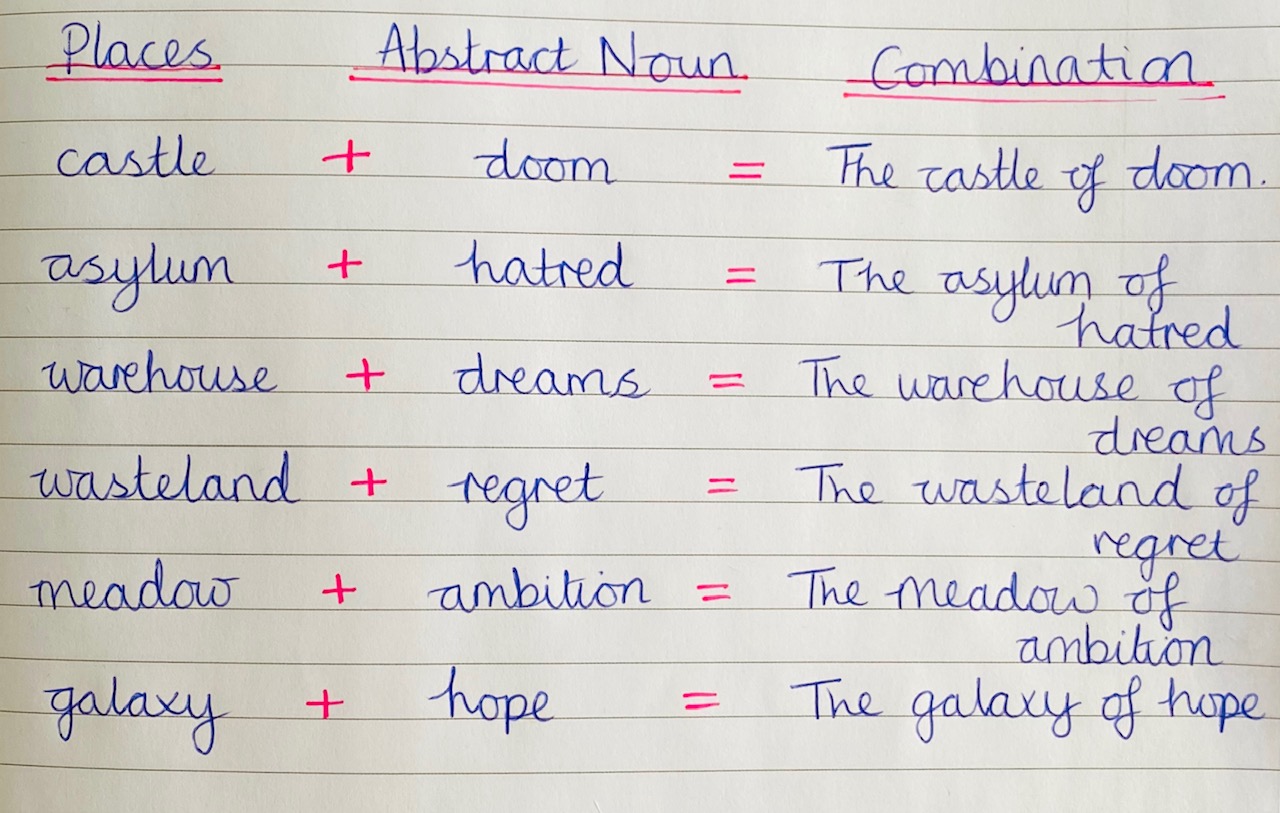 Places Abstract Noun Combination
castle + doom = The castle of doom.
asylum + hatred = The asylum of
hatred
warehouse + dreams = The warehouse of
dreams
wasteland + regret = The wasteland of
regret
meadow + ambition = The meadow of
ambition
galaxy + hope = The galaxy of hope